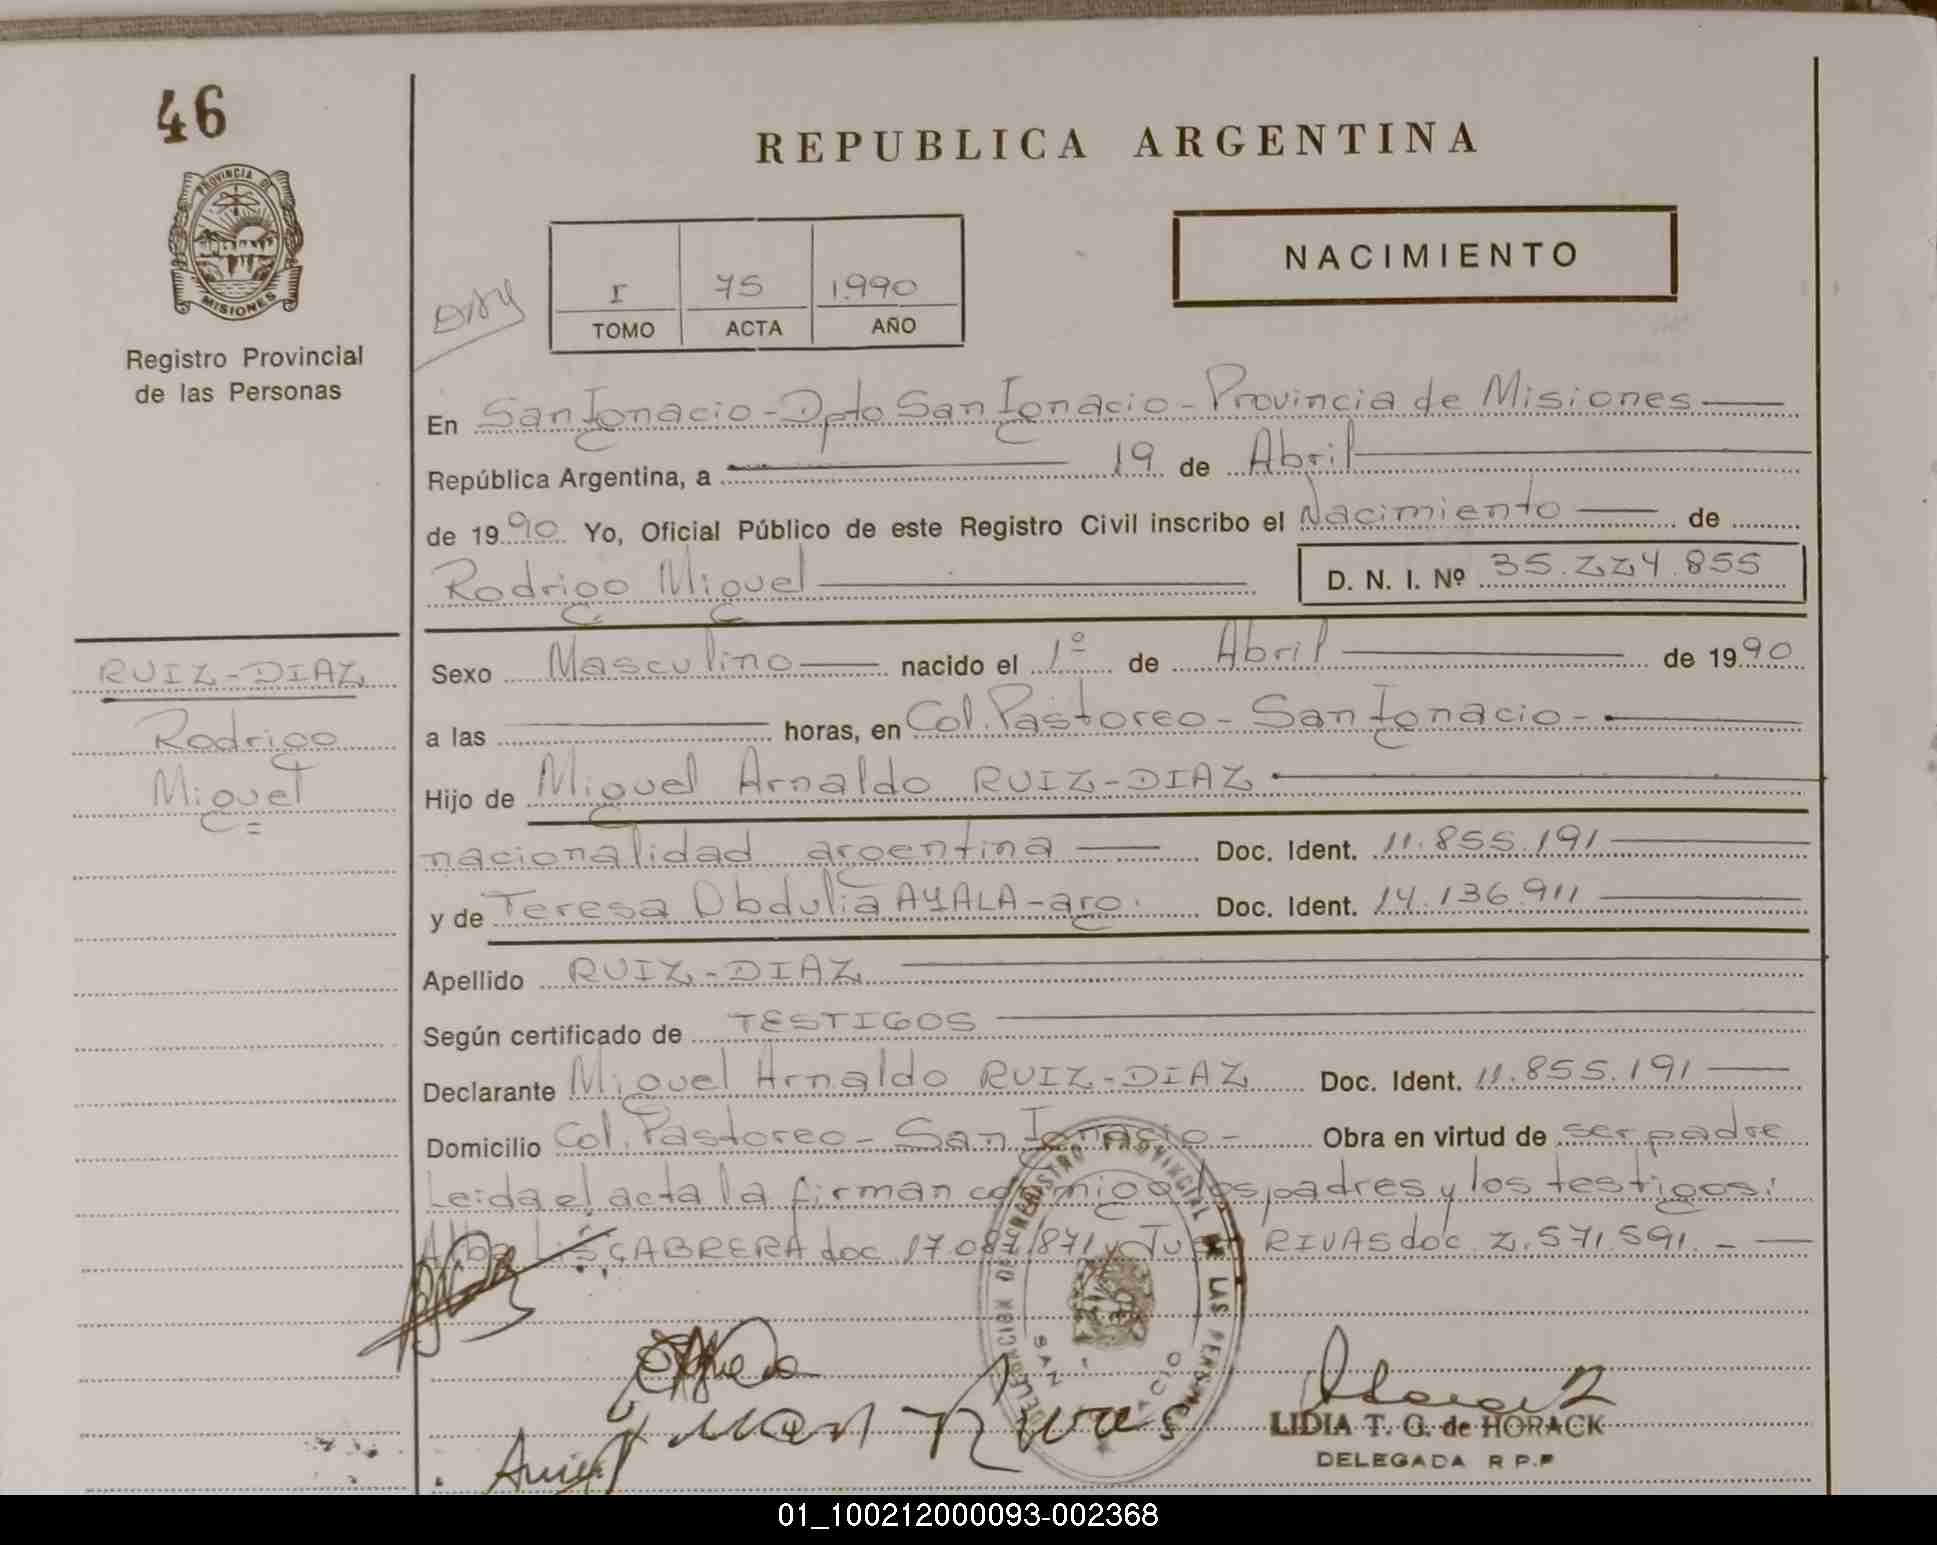 46
REPUBLICA ARGENTINA
PROVINCIA DE
MISIONES
Registro Provincial
de las Personas
NACIMIENTO
I 75 1.990
TOMO ACTA AÑO
En San Ignacio - Dpto San Ignacio - Provincia de Misiones
República Argentina, a 19 de Abril
de 1990 Yo, Oficial Público de este Registro Civil inscribo el Nacimiento de
Rodrigo Miguel D. N. I. Nº 35.224.855
RUIZ-DIAZ
Rodrigo
Miguel
Sexo Masculino nacido el 1º de Abril de 1990
a las horas, en Col. Pastoreo - San Ignacio -
Hijo de Miguel Arnaldo RUIZ-DIAZ
nacionalidad argentina Doc. Ident. 11.855.191
y de Teresa Obdulia AYALA - arg. Doc. Ident. 14.136.911
Apellido RUIZ-DIAZ
Según certificado de TESTIGOS
Declarante Miguel Arnaldo RUIZ-DIAZ Doc. Ident. 11.855.191
Domicilio Col. Pastoreo - San Ignacio - Obra en virtud de ser padre
Leida el acta la firman conmigo los padres y los testigos:
CABRERA doc. RIVAS doc. 2.571.591. -
DELEGACION DE REGISTRO PROVINCIAL DE LAS PERSONAS
SAN
Juan Rivas
LIDIA T. G. de HORACK
DELEGADA R P.P
01_100212000093-002368